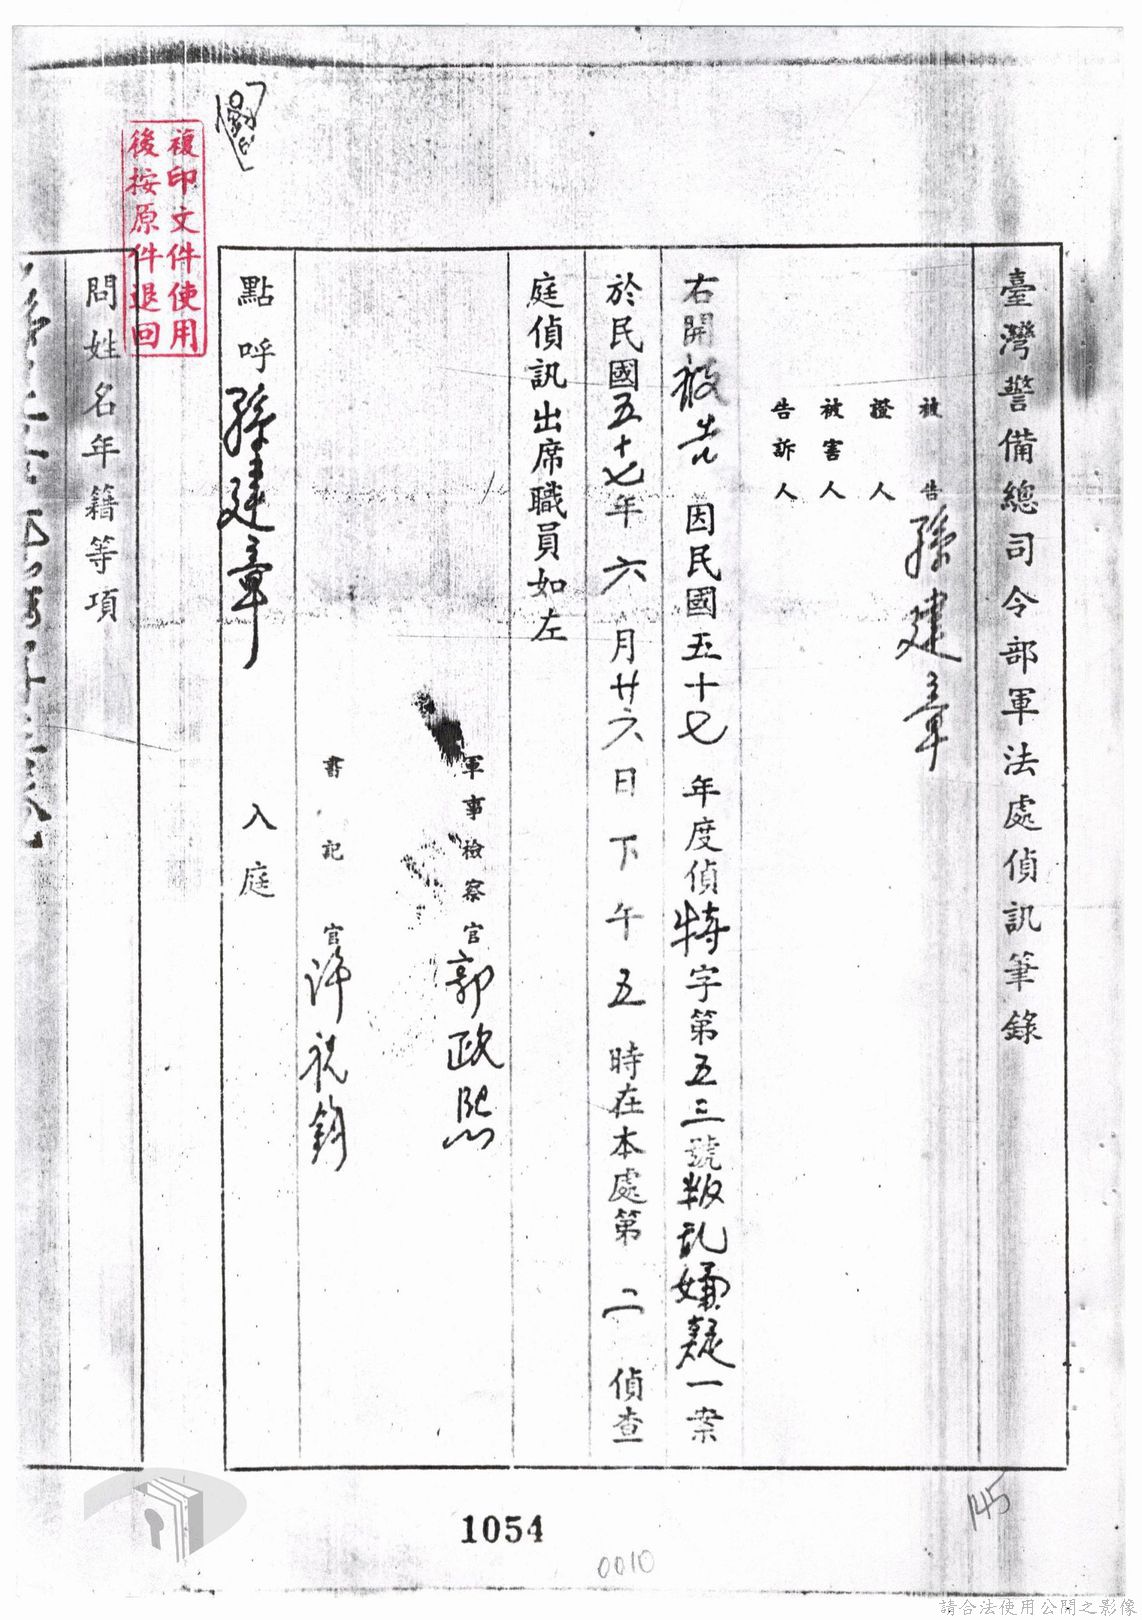 臺灣警備總司令部軍法處偵訊筆錄
被告 孫建章
證人
被害人
告訴人
右開被告因民國五十七年度偵特字第五三號叛乱嫌疑一案
於民國五十七年六月廿六日下午五時在本處第二偵查
庭偵訊出席職員如左
軍事檢察官 郭政熙
書記官 許祝鈞
點呼孫建章 入庭
問姓名年籍等項
複印文件使用
後按原件退回
1054
0010
145
請合法使用公開之影像